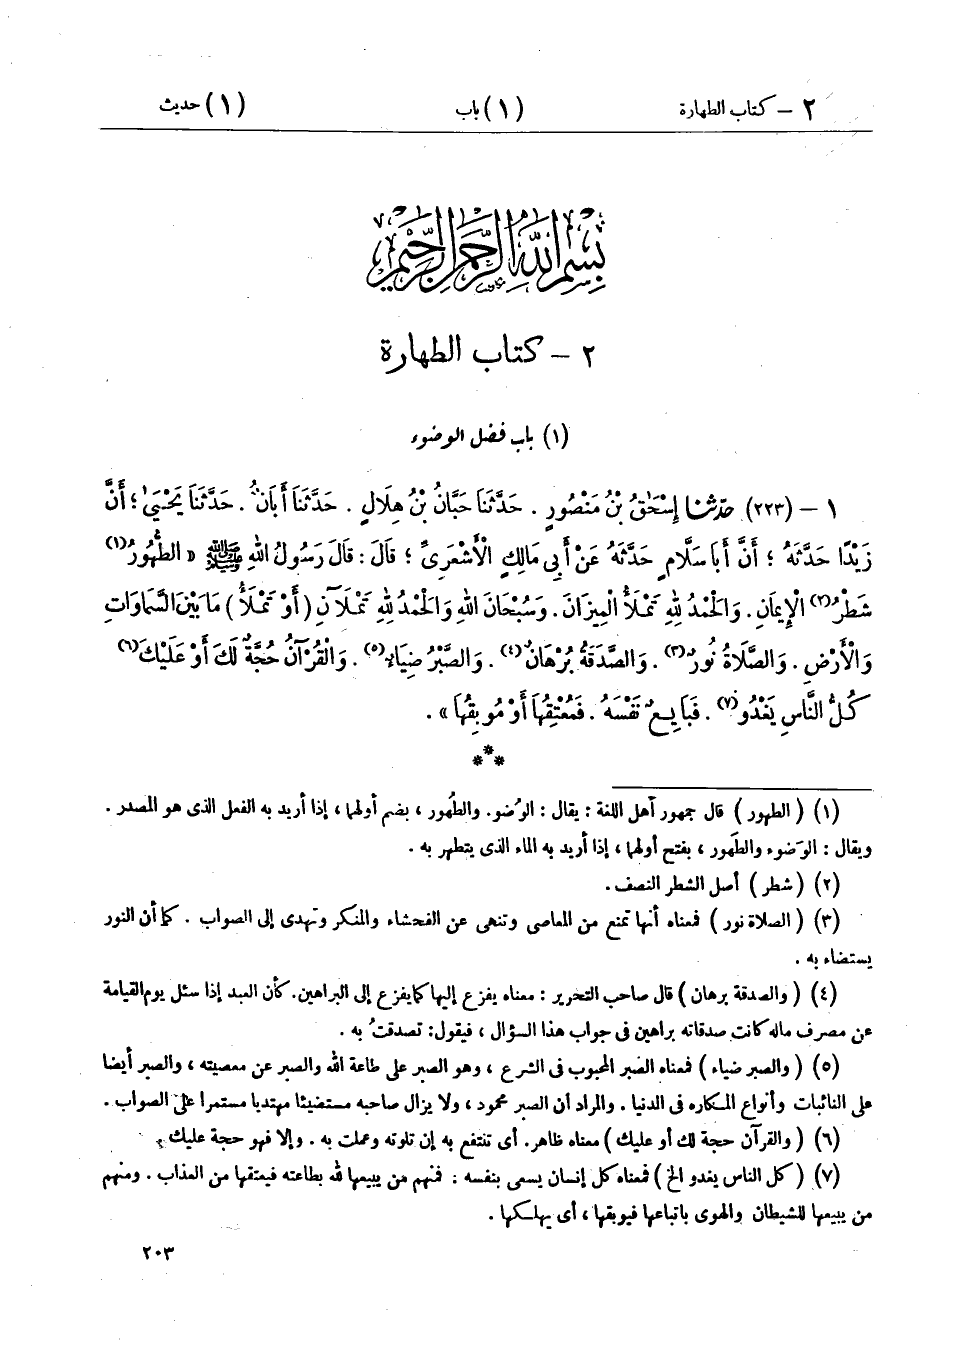 ٢ – كتاب الطهارة (١) باب (١) حديث
بسم الله الرحمن الرحيم
٢ – كتاب الطهارة
(١) باب فضل الوضوء
١ – (٢٢٣) حَدَّثَنَا إِسْحَٰقُ بْنُ مَنْصُورٍ . حَدَّثَنَا حَبَّانُ بْنُ هِلَالٍ . حَدَّثَنَا أَبَانٌ . حَدَّثَنَا يَحْيَىٰ ؛ أَنَّ
زَيْدًا حَدَّثَهُ ؛ أَنَّ أَبَا سَلَّامٍ حَدَّثَهُ عَنْ أَبِي مَالِكٍ الْأَشْعَرِيِّ ؛ قَالَ : قَالَ رَسُولُ اللهِ ﷺ « الطُّهُورُ(١)
شَطْرُ(٢) الْإِيمَانِ . وَالْحَمْدُ لِلهِ تَمْلَأُ الْمِيزَانَ . وَسُبْحَانَ اللهِ وَالْحَمْدُ لِلهِ تَمْلَآنِ (أَوْ تَمْلَأُ) مَا بَيْنَ السَّمَاوَاتِ
وَالْأَرْضِ . وَالصَّلَاةُ نُورٌ(٣) . وَالصَّدَقَةُ بُرْهَانٌ(٤) . وَالصَّبْرُ ضِيَاءٌ(٥) . وَالْقُرْآنُ حُجَّةٌ لَكَ أَوْ عَلَيْكَ(٦)
كُلُّ النَّاسِ يَغْدُو(٧) . فَبَايِعٌ نَفْسَهُ . فَمُعْتِقُهَا أَوْ مُوبِقُهَا » .
***
(١) ( الطهور ) قال جمهور أهل اللغة : يقال : الوُضوء والطُهور ، بضم أولهما ، إذا أريد به الفعل الذى هو المصدر .
ويقال : الوَضوء والطَهور ، بفتح أولهما ، إذا أريد به الماء الذى يتطهر به .
(٢) ( شطر ) أصل الشطر النصف .
(٣) ( الصلاة نور ) فمعناه أنها تمنع من المعاصى وتنهى عن الفحشاء والمنكر وتهدى إلى الصواب . كما أن النور
يستضاء به .
(٤) ( والصدقة برهان ) قال صاحب التحرير : معناه يفزع إليها كما يفزع إلى البراهين. كأن العبد إذا سئل يوم القيامة
عن مصرف ماله كانت صدقاته براهين فى جواب هذا السؤال ، فيقول : تصدقتُ به .
(٥) ( والصبر ضياء ) فمعناه الصبر المحبوب فى الشرع ، وهو الصبر على طاعة الله والصبر عن معصيته ، والصبر أيضا
على النائبات وأنواع المكاره فى الدنيا . والمراد أن الصبر محمود ، ولا يزال صاحبه مستضيئا مهتديا مستمرا على الصواب .
(٦) ( والقرآن حجة لك أو عليك ) معناه ظاهر. أى تنتفع به إن تلوته وعملت به . وإلا فهو حجة عليك .
(٧) ( كل الناس يغدو الخ ) فمعناه كل إنسان يسعى بنفسه : فمنهم من يبيعها لله بطاعته فيعتقها من العذاب . ومنهم
من يبيعها للشيطان والهوى باتباعها فيوبقها ، أى يهلكها .
٢٠٣